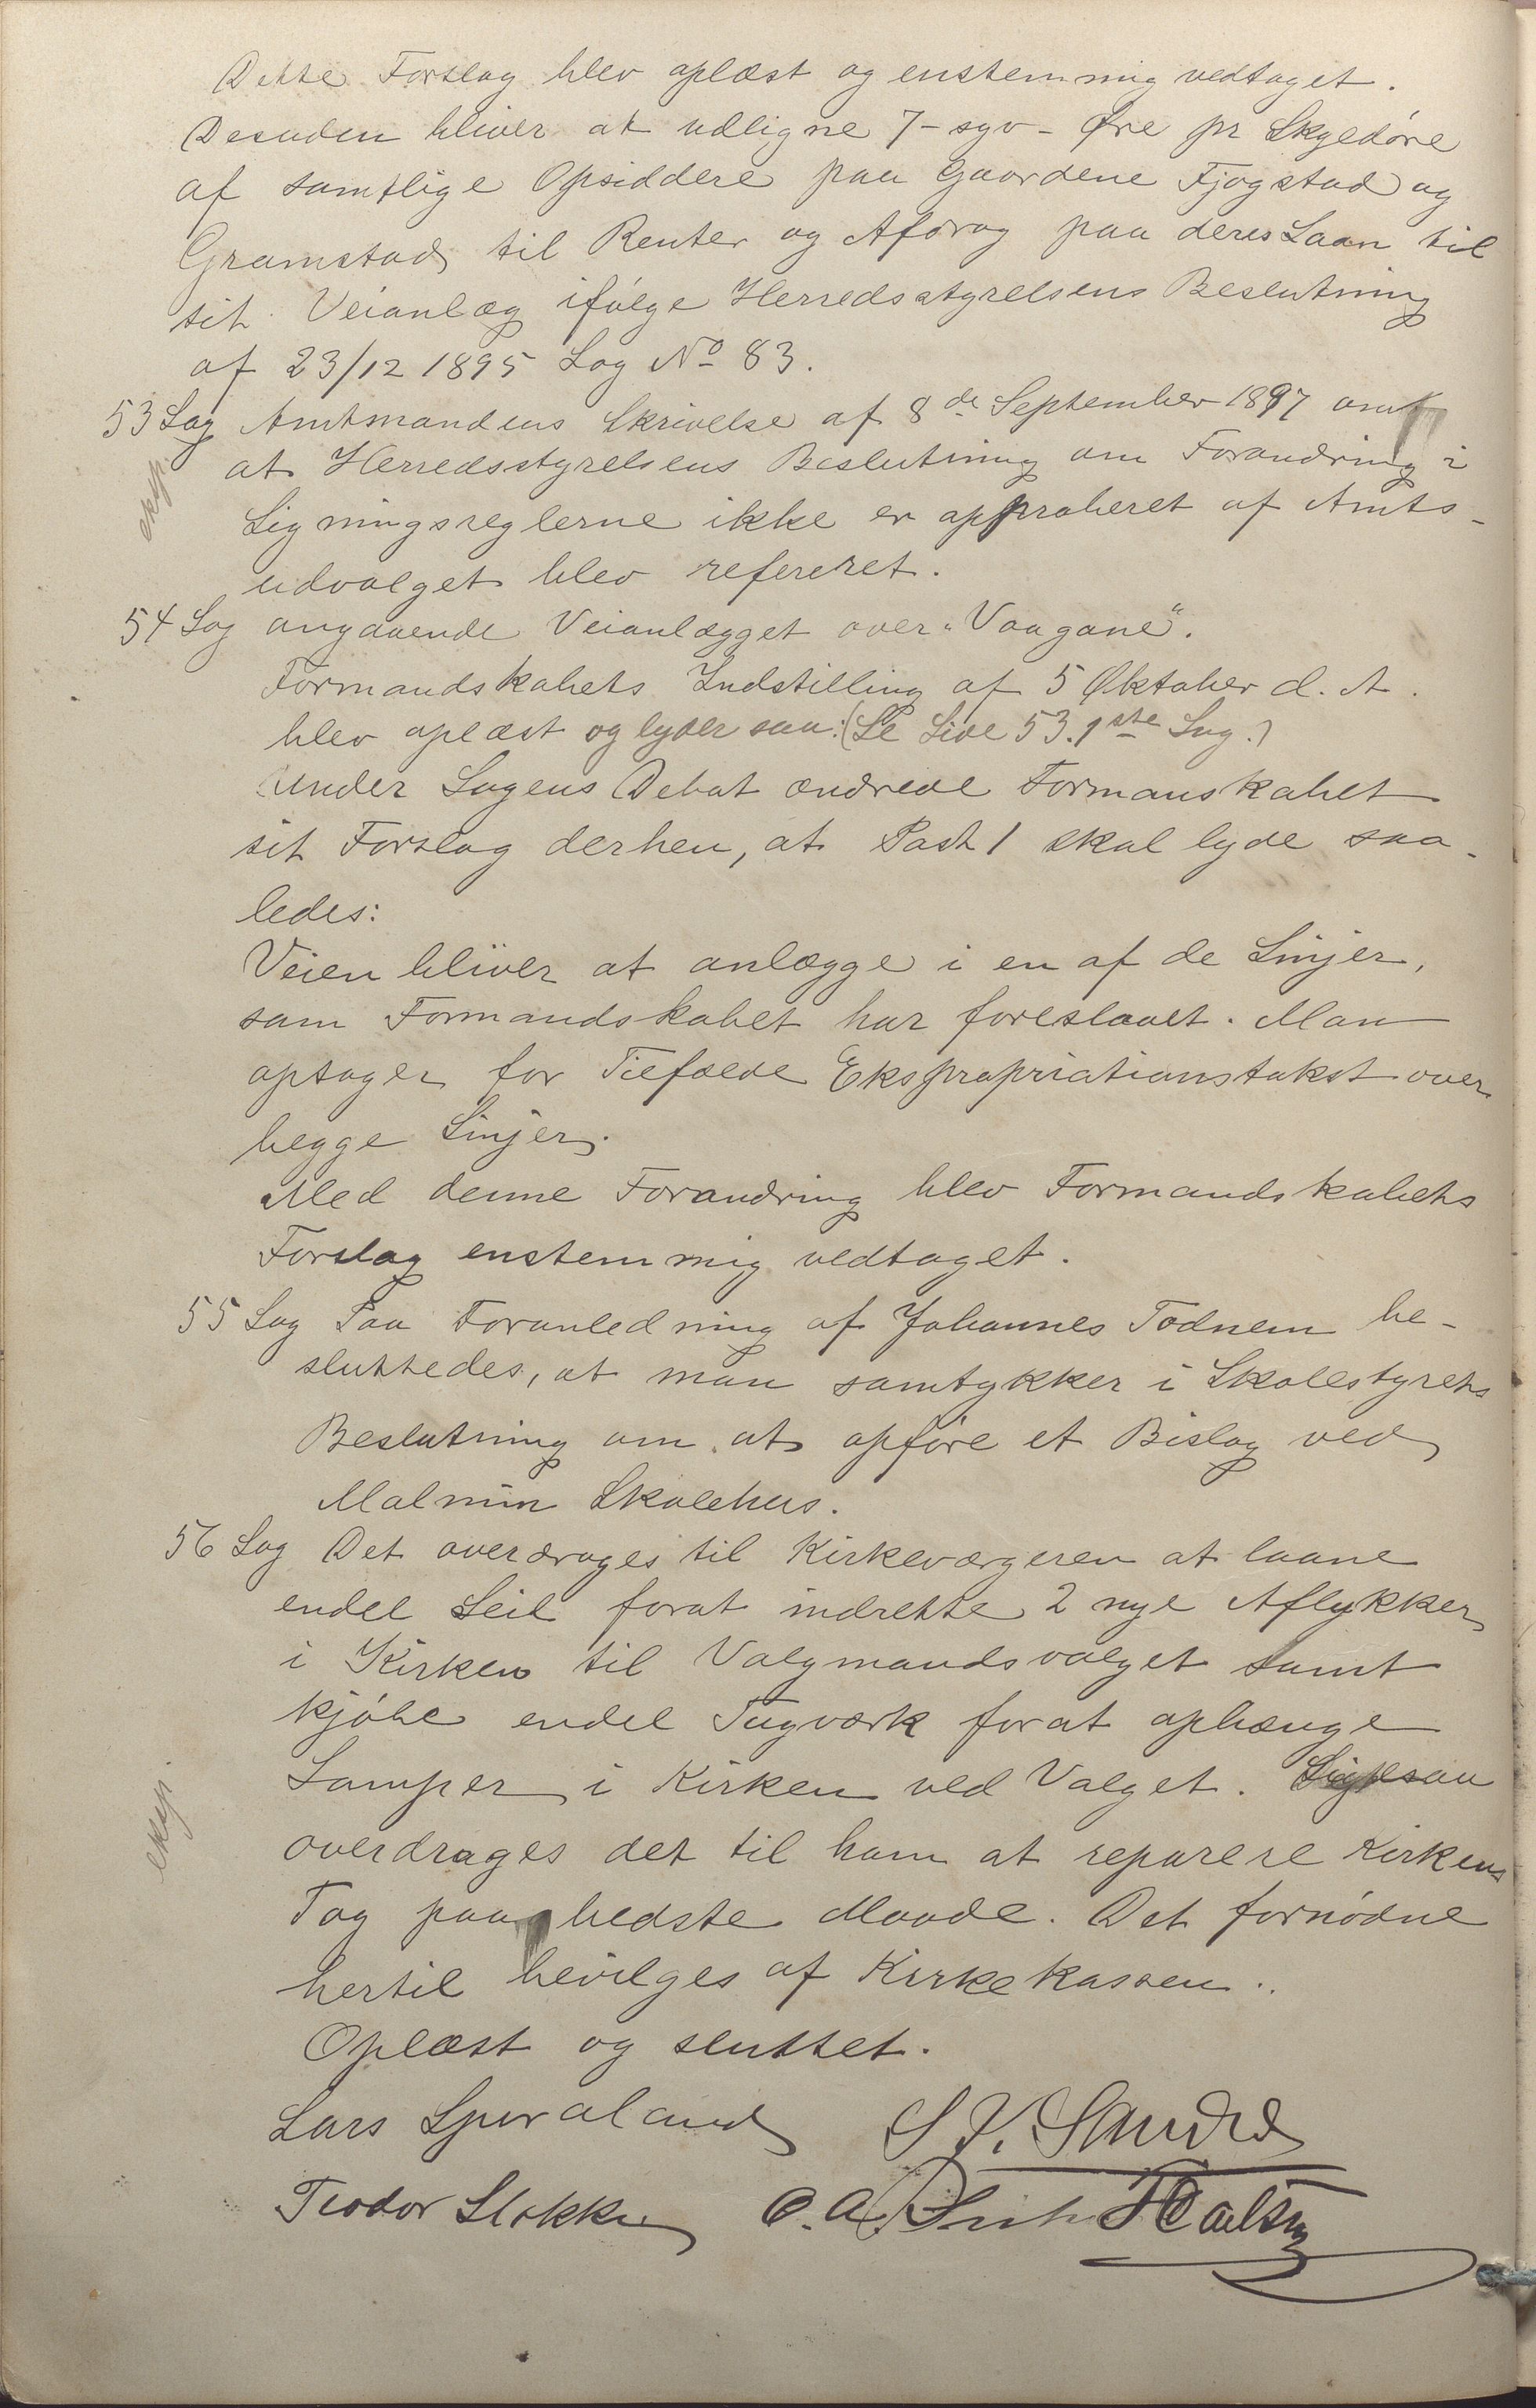 Dette Forslag blev oplæst og enstemmig vedtaget.
Desuden bliver at udligne 7 - syv - Øre pr Skyldøre
af samtlige Opsiddere paa Gaardene Fjogstad og
Gramstad til Renter og Afdrag paa deres Laan til
sit Veianlæg ifølge Herredsstyrelsens Beslutning
af 23/12 1895 Sag No 83.
53 Sag Amtmandens Skrivelse af 8de September 1897 om
at Herredsstyrelsens Beslutning om Forandring i
eksp.
Ligningsreglerne ikke er approberet af Amts-
udvalget blev refereret.
54 Sag angaaende Veianlægget over "Vaagane".
Formandskabets Indstilling af 5 Oktober d. A.
blev oplæst og lyder saa: (Se Side 53. 1ste Sag.)
Under Sagens Debat ændrede Formanskabet
sit Forslag derhen, at Post 1 skal lyde saa-
ledes:
Veien bliver at anlægge i en af de Linjer,
som Formandskabet har foreslaaet. Man
optager for Tilfælde Ekspropriationstakst over
begge Linjer.
Med denne Forandring blev Formandskabets
Forslag enstemmig vedtaget.
55 Sag Paa Foranledning af Johannes Todnem be-
sluttedes, at man samtykker i Skolestyrets
Beslutning om at opføre et Bislag ved
Malmin Skolehus.
56 Sag Det overdrages til Kirkeværgeren at laane
endel Seil forat indrette 2 nye Aflukker
i Kirken til Valgmandsvalget samt
kjøbe endel Tugværk forat ophænge
Lamper i Kirken ved Valget. Ligesaa
eksp.
overdrages det til ham at reparere Kirkens
Tag paa bedste Maade. Det fornødne
hertil bevilges af Kirkekassen.
Oplæst og sluttet.
Lars Spuraland S V. Sandved
Teodor Stokke O. A.